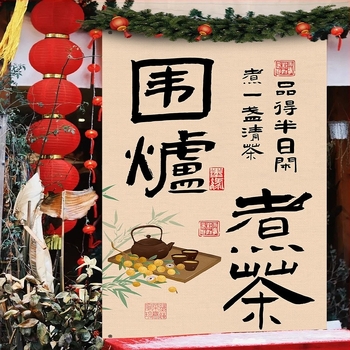 围爐
煮茶
煮一盏清茶
品得半日閑